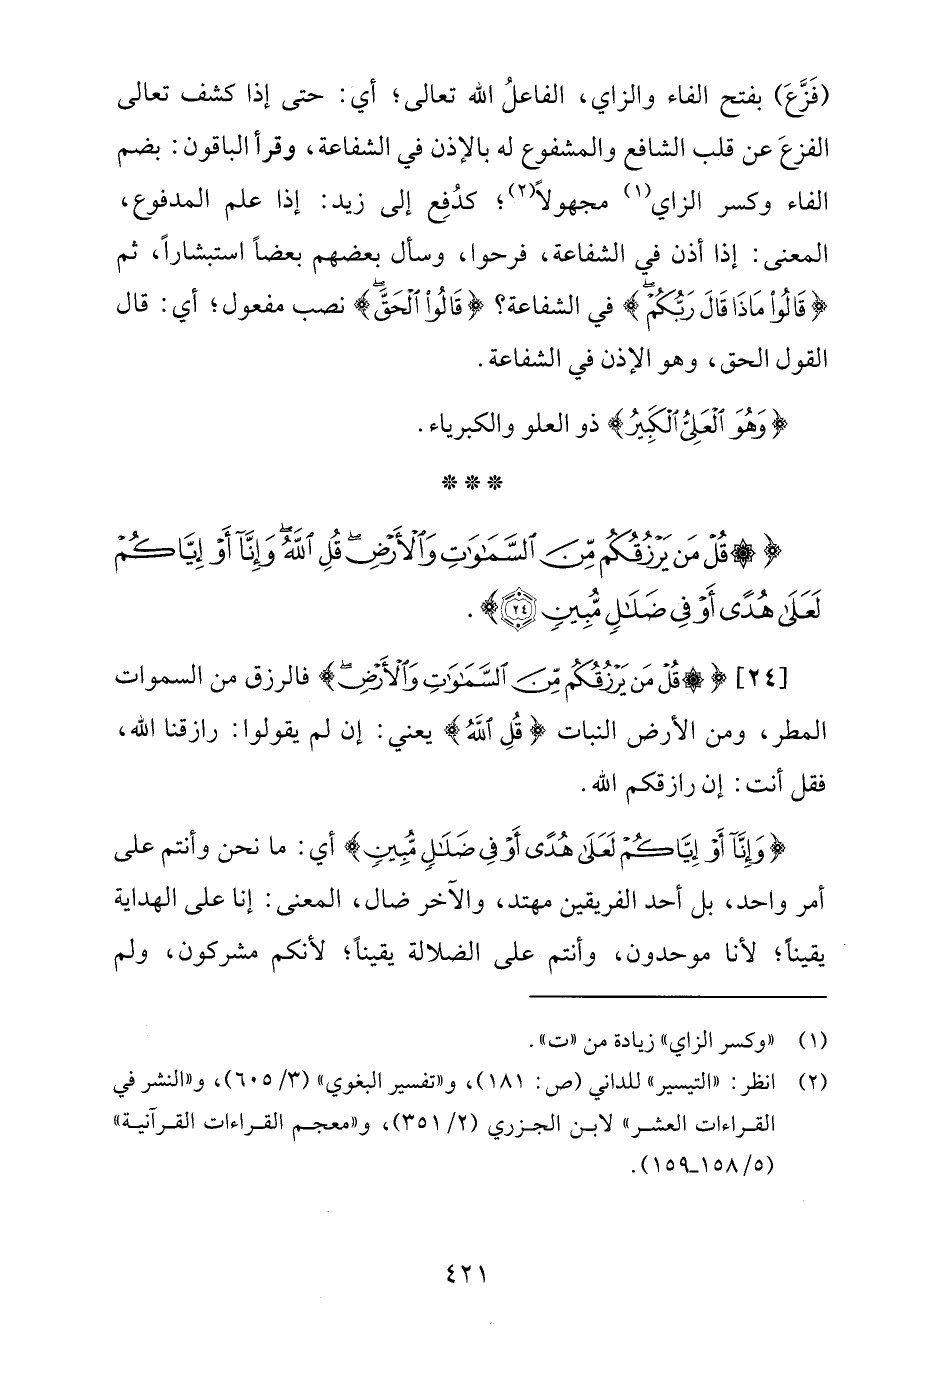 (فَزَّعَ) بفتح الفاء والزاي، الفاعلُ الله تعالى؛ أي: حتى إذا كشف تعالى
الفزعَ عن قلب الشافع والمشفوع له بالإذن في الشفاعة، وقرأ الباقون: بضم
الفاء وكسر الزاي(١) مجهولاً(٢)؛ كدُفِع إلى زيد: إذا علم المدفوع،
المعنى: إذا أذن في الشفاعة، فرحوا، وسأل بعضهم بعضاً استبشاراً، ثم
﴿قَالُوا۟ مَاذَا قَالَ رَبُّكُمْۖ﴾ في الشفاعة؟ ﴿قَالُوا۟ ٱلْحَقَّۖ﴾ نصب مفعول؛ أي: قال
القول الحق، وهو الإذن في الشفاعة.
﴿وَهُوَ ٱلْعَلِىُّ ٱلْكَبِيرُ﴾ ذو العلو والكبرياء.
***
﴿۞ قُلْ مَن يَرْزُقُكُم مِّنَ ٱلسَّمَٰوَٰتِ وَٱلْأَرْضِۖ قُلِ ٱللَّهُۖ وَإِنَّآ أَوْ إِيَّاكُمْ
لَعَلَىٰ هُدًى أَوْ فِى ضَلَٰلٍ مُّبِينٍ ۝٢٤﴾.
[٢٤] ﴿۞ قُلْ مَن يَرْزُقُكُم مِّنَ ٱلسَّمَٰوَٰتِ وَٱلْأَرْضِۖ﴾ فالرزق من السموات
المطر، ومن الأرض النبات ﴿قُلِ ٱللَّهُ﴾ يعني: إن لم يقولوا: رازقنا الله،
فقل أنت: إن رازقكم الله.
﴿وَإِنَّآ أَوْ إِيَّاكُمْ لَعَلَىٰ هُدًى أَوْ فِى ضَلَٰلٍ مُّبِينٍ﴾ أي: ما نحن وأنتم على
أمر واحد، بل أحد الفريقين مهتد، والآخر ضال، المعنى: إنا على الهداية
يقيناً؛ لأنا موحدون، وأنتم على الضلالة يقيناً؛ لأنكم مشركون، ولم
(١) «وكسر الزاي» زيادة من «ت».
(٢) انظر: «التيسير» للداني (ص: ١٨١)، و«تفسير البغوي» (٣/ ٦٠٥)، و«النشر في
القراءات العشر» لابن الجزري (٢/ ٣٥١)، و«معجم القراءات القرآنية»
(٥/ ١٥٨ـ١٥٩).
٤٢١